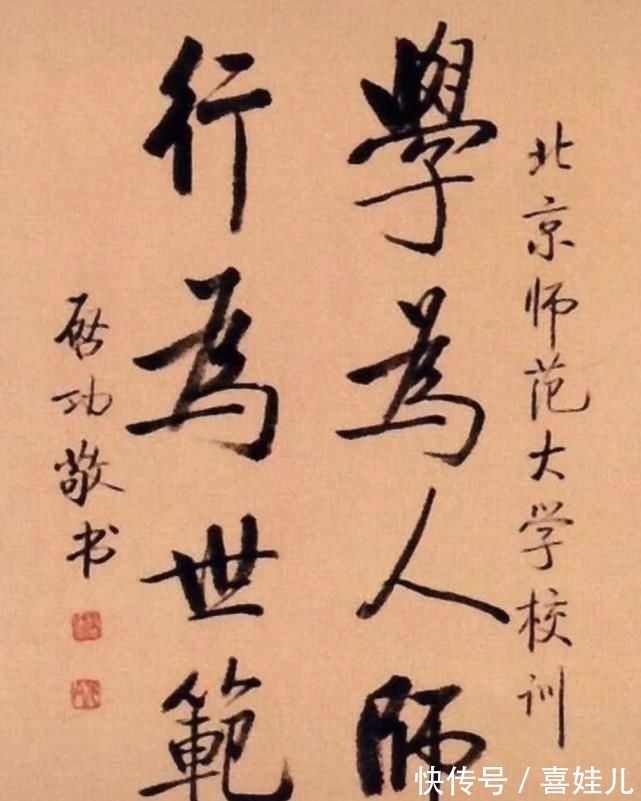 北京师范大学校训
學為人師
行為世範
启功敬书
快传号 / 喜娃儿